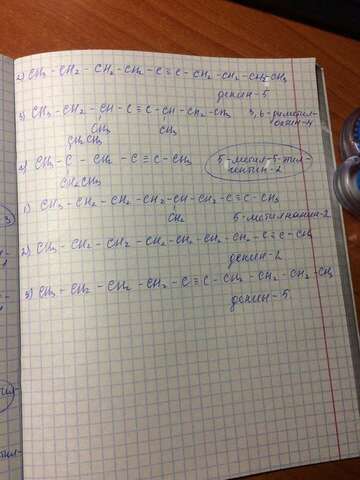 2) CH₃ - CH₂ - CH₂ - CH₂ - C ≡ C - CH₂ - CH₂ - CH₂ - CH₃
децин-5
3) CH₃ - CH₂ - CH - C ≡ C - CH - CH₂ - CH₃ 3,6-диметил-
CH₃ CH₃ октин-4
CH₂CH₃
4) CH₃ - C - CH₂ - C ≡ C - CH₃ 5-метил-5-этил-
CH₂CH₃ гептин-2
1) CH₃ - CH₂ - CH₂ - CH₂ - CH - CH₂ - C ≡ C - CH₃
CH₃ 5-метилнонин-2
2) CH₃ - CH₂ - CH₂ - CH₂ - CH₂ - CH₂ - CH₂ - C ≡ C - CH₃
децин-2
3) CH₃ - CH₂ - CH₂ - CH₂ - C ≡ C - CH₂ - CH₂ - CH₂ - CH₃
децин-5